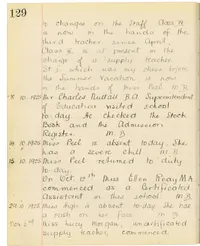 129
in changes on the Staff. Class
is now in the hands of the
head teacher since April,
Class is at present in the
charge of a supply teacher
St 2 which was my class before
the Summer Vacation is now
in the hands of Miss Peel M.B
8 10. 1925 Sir Charles Superintendent
of Education visited school
to-day. He checked the Stock
Book and the Admission
Register. M.B
14 10. 1925 Miss Peel is absent today. She
has a severe chill M.B
16 10. 1925 Miss Peel returned to duty
to-day.
On Oct 12th Miss Ellen M.A
commenced as a Certificated
Assistant in this school M.B
29. 10. 1925 Miss is absent to-day she has
a rash on her face. M.B
Nov 2nd Miss Lucy Morgan, uncertificated
supply teacher, commenced